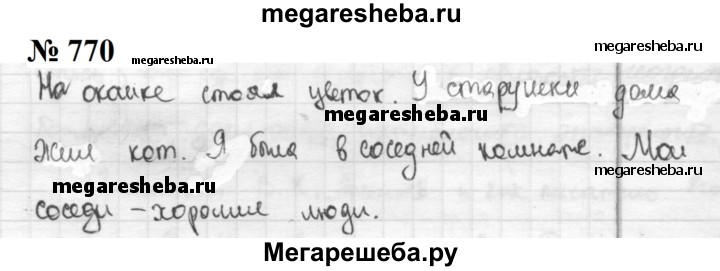 megaresheba.ru
№ 770
megaresheba.ru
megaresheba.ru
На окошке стоял цветок. У старушки дома
megaresheba.ru
жил кот. Я была в соседней комнате. Мои
megaresheba.ru
megaresheba.ru
соседи – хорошие люди.
Мегарешеба.ру